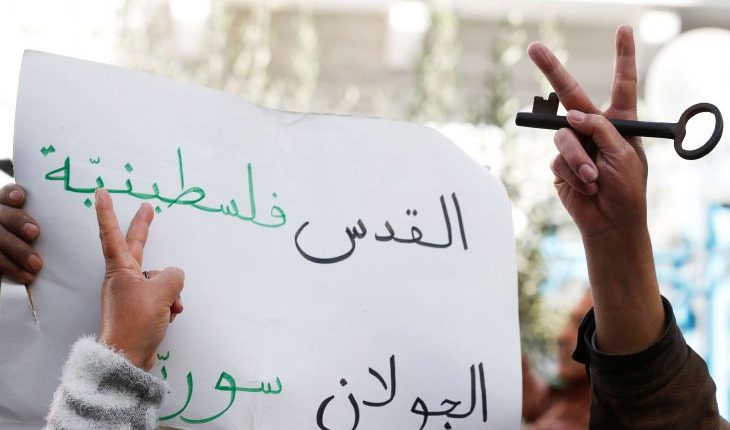 القدس فلسطينيّة
الجولان سوريّة